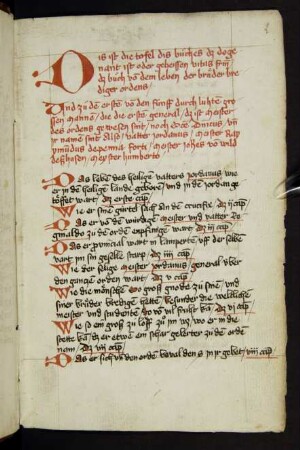 Dis ist die tofel dis bůches dz do ge
nant ist oder geheissen vitas frm
dz bůch võ dem leben der brůder bre
diger ordens /
Und zů dẽ erstẽ võ den fúnff durch luhtẽ gro
ssen mannẽ / die die erste general / dz ist meister
des ordens gewesen sint / noch sancte dinicus / vñ
ir name sint Alsus / vatter jordanus / meister Ray
mũdus de penna forti / meister johẽs võ wild
deshusen / meyster humberto
Das lebẽ des heilige vatters jordanus / wie
er in dẽ heilige lande geborẽ / vnd in d jordan ge
toiffet wart / dz erst cap
Wie er sine gúrtel sach an dẽ crucifix / dz ij cap
Das er võ dẽ wúrdigẽ meister vnd vatter Re
ginaldo zů dẽ ordẽ enpfinge wart / dz iij cap
Das er provincial wart in lamparte / vff der selbe
vart im sin geselle starp / dz iiij cap
Wie der selige meister jordanus / general úber
den gantzẽ orden wart / dz v cap
Wie die mõnsche gros gnode zů sine / vnd
siner brůder bredigen hatte / besunder die weltliche
meister vnd studente / do võ vil frúht kã / dz vj cap
Wie so ein gros zů loff zů im wz / wo er in die
stette kã / dz er etwe ein schar gelerter zů dẽ ordẽ
nam / dz vij cap
Das er sich vñ den orden beval den s in ir gebet / viij cap